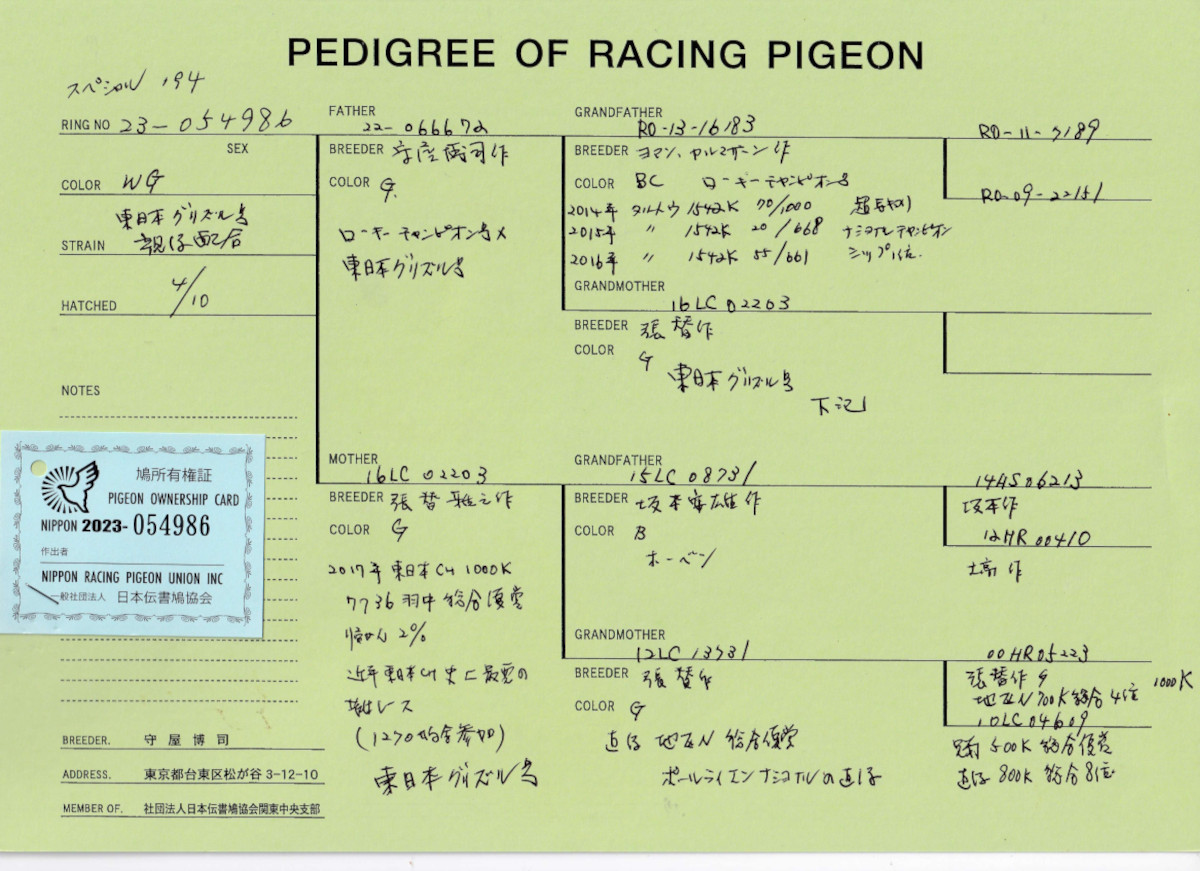 PEDIGREE OF RACING PIGEON
スペシャル 194
RING NO 23-054986
SEX
COLOR WG
東日本グリズル号
STRAIN 親仔配合
HATCHED 4/10
NOTES
鳩所有権証
PIGEON OWNERSHIP CARD
NIPPON 2023- 054986
作出者
NIPPON RACING PIGEON UNION INC
一般社団法人 日本伝書鳩協会
BREEDER. 守屋博司
ADDRESS. 東京都台東区松が谷3-12-10
MEMBER OF. 社団法人日本伝書鳩協会関東中央支部
FATHER
22-066672
BREEDER 守屋博司作
COLOR G
ローキーチャンピオン号×
東日本グリズル号
MOTHER
16LC 02203
BREEDER 張替雅之作
COLOR G
2017年 東日本CH 1000K
7736羽中 総合優勝
2%
近年東日本CH史上最悪の
レース
東日本グリズル号
GRANDFATHER
RO-13-16183
BREEDER ヨマン、
COLOR BC ローキーチャンピオン号
2014年 タルトウ 1542K 70/1000
2015年 〃 1542K 20/668 ナショナルチャンピオン
2016年 〃 1542K 55/661 シップ1位.
GRANDMOTHER
16LC 02203
BREEDER 張替作
COLOR G
東日本グリズル号
下記
GRANDFATHER
15LC 08731
BREEDER 坂本 作
COLOR B
ホーベン
GRANDMOTHER
BREEDER 張替作
COLOR G
直仔 地区N 総合優勝
ポールライエンナショナルの直仔
RO-09-22151
14AS06213
坂本作
12HR 00410
作
00HR05223
張替作 G 1000K
地区N 700K 総合4位
10LC04609
500K 総合優勝
直仔 800K 総合8位